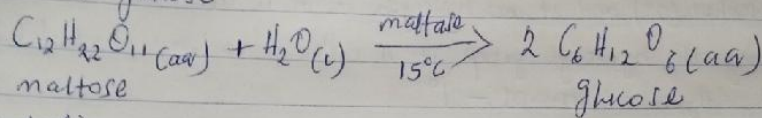 C₁₂H₂₂O₁₁(aq) + H₂O(l) maltase 15°C → 2 C₆H₁₂O₆(aq)
maltose glucose